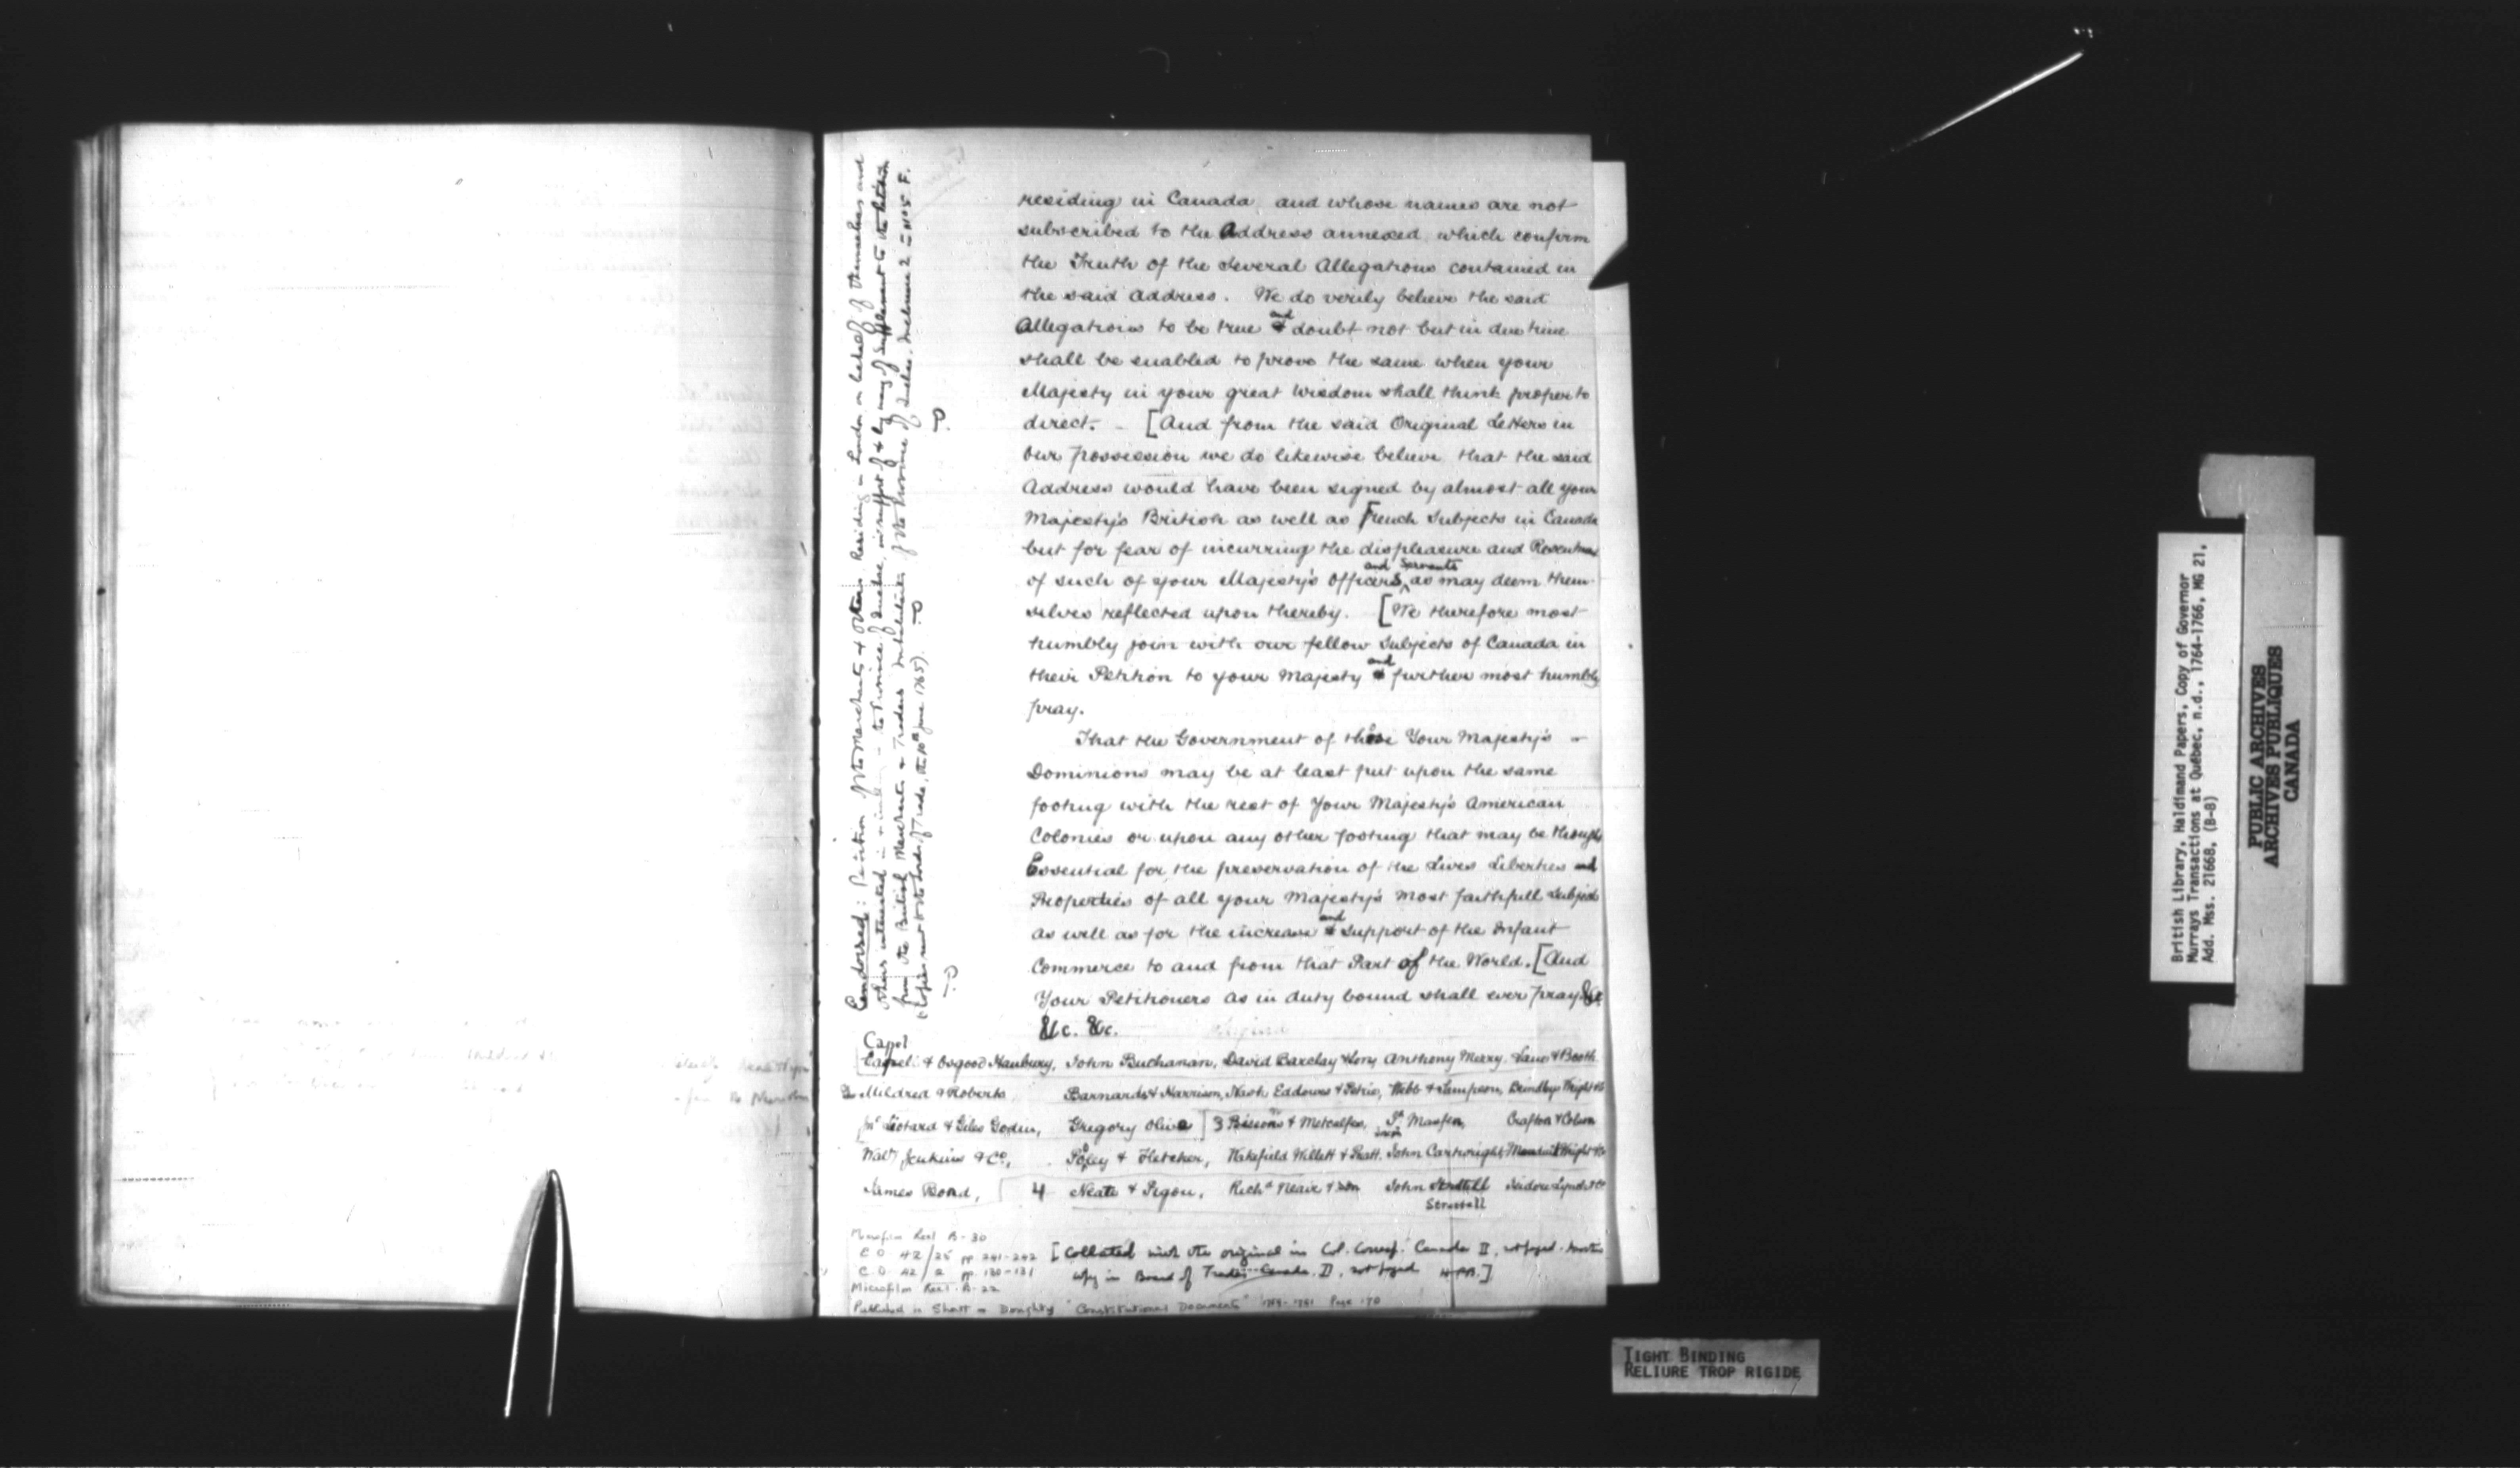 residing in Canada, and whose names are not
subscribed to the Address annexed, which confirm
the Truth of the several Allegations contained in
the said Address. We do verily believe the said
Allegations to be true and doubt not but in due time
shall be enabled to prove the same when your
Majesty in your great Wisdom shall think proper to
direct. - [And from the said Original Letters in
our Possession we do likewise believe, that the said
Address would have been signed by almost all your
Majesty's British as well as French Subjects in Canada
but for fear of incurring the displeasure and
of such of your Majesty's Officers and Servants as may deem them-
selves reflected upon thereby. [We therefore most
humbly join with our fellow Subjects of Canada in
their Petition to your Majesty and further most humbly
pray.
That the Government of these Your Majesty's -
Dominions may be at least put upon the same
footing with the rest of Your Majesty's American
Colonies or upon any other footing that may be
Essential for the preservation of the Lives Liberties and
Properties of all your Majesty's most faithfull
as well as for the increase and support of the Infant
Commerce to and from that Part of the World. [And
Your Petitioners as in duty bound shall ever pray &c.
&c. &c.
Capel
& Osgood Hanbury, John Buchanan, David Barclay & Sons, Anthony Merry. Lane & Booth.
Mildred & Roberts, Barnards & Harrison, Nash Eddowes & Petrie, Webb & Sampson, Brindley Wright
Liotard & Giles Godin, Gregory Olive ] 3 & Metcalfe, Crafton & Colson
Jenkins & Co, & Fletcher, Wakefield Willett & Pratt. John Cartwright,
James Bond, 4 Neate & Pigou, Richd Neave & son John Isidore Lynch
Strettell
Endorsed: Petition of the Merchants & others Residing in London on behalf of themselves and
others interested in the Province of Quebec in support of & by way of Supplement to the Petition
from the British Merchants & Traders Inhabitants of the Province of Quebec. Inclosure 2 in No 5 F.
Copies sent to the Lords of Trade, the 10th June 1765).
Microfilm Reel B-30
C.O. 42/25 pp 241-242
C.O. 42/2 pp. 130-131
Microfilm Reel. B-22
[Collated with the original in Col. Corresp. Canada II, not paged. Another
copy in Board of Trade Canada. II, not paged
Published in Shortt & Doughty "Constitutional Documents" 1759-1791 Page 170
British Library, Haldimand Papers, Copy of Governor
Murrays Transactions at Québec, n.d., 1764-1766, MG 21,
Add. Mss. 21668, (B-8)
PUBLIC ARCHIVES
ARCHIVES PUBLIQUES
CANADA
TIGHT BINDING
RELIURE TROP RIGIDE